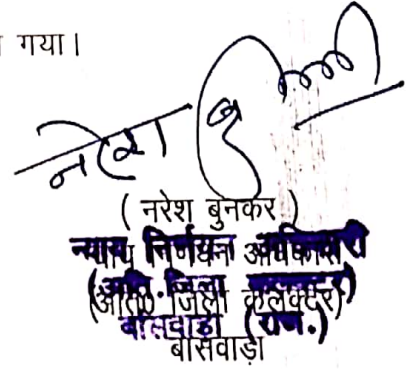 गया।
नरेश
( नरेश बुनकर )
न्याय निर्णयन अधिकारी
(अति. जिला कलक्टर)
बांसवाड़ा (राज.)
बांसवाड़ा